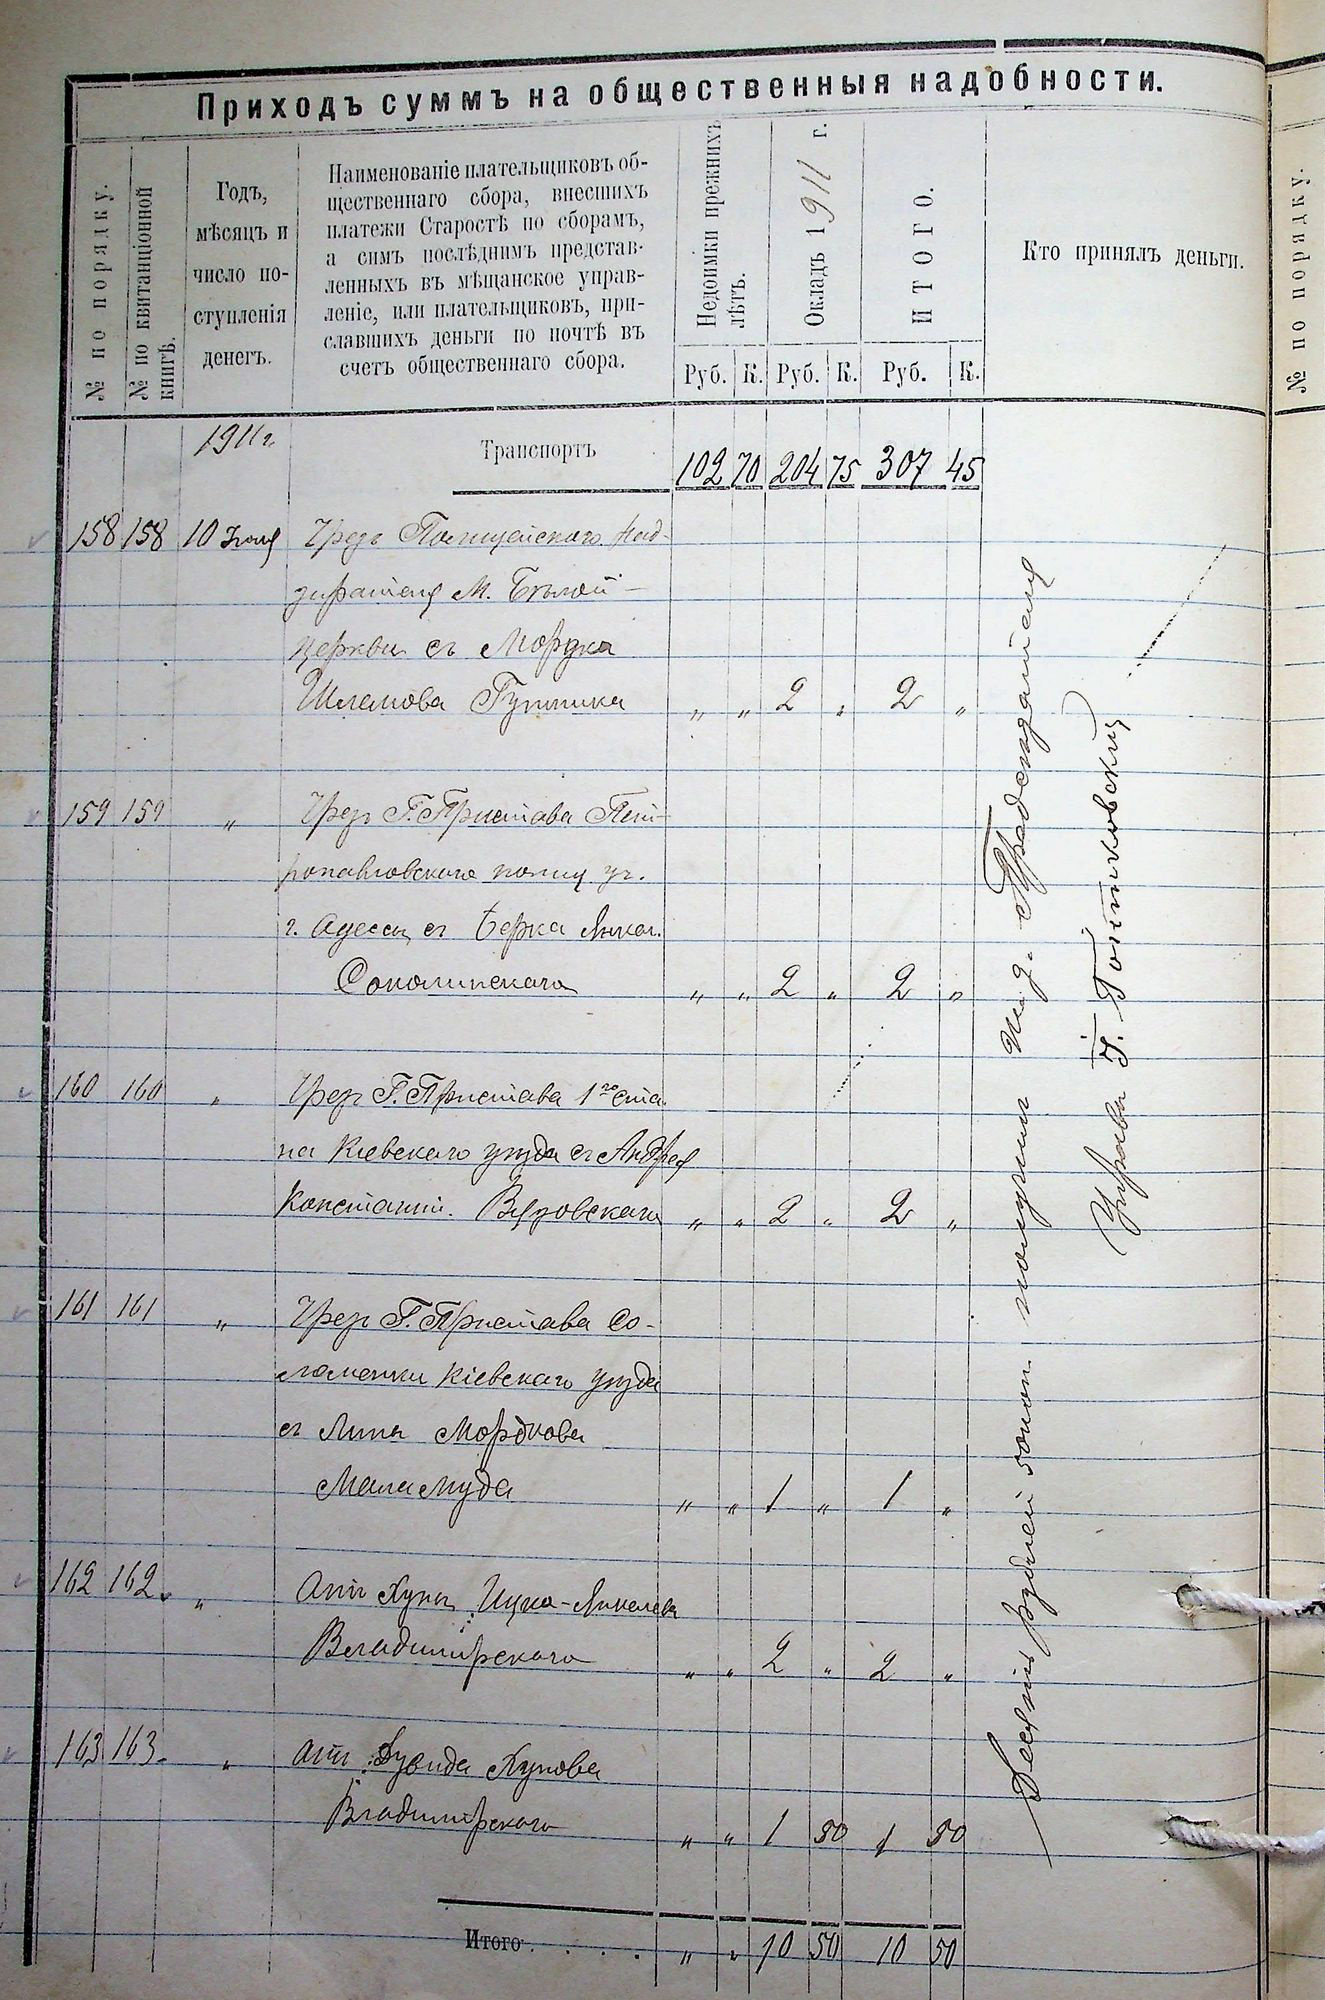 Приходъ суммъ на общественныя надобности.
№ по порядку.
№ по квитанціонной
книгѣ.
Годъ,
мѣсяцъ и
число по-
ступленія
денегъ.
Наименованіе плательщиковъ об-
щественнаго сбора, внесшихъ
платежи Старостѣ по сборамъ,
а симъ послѣднимъ представ-
ленныхъ въ мѣщанское управ-
леніе, или плательщиковъ, при-
славшихъ деньги по почтѣ въ
счетъ общественнаго сбора.
Недоимки прежнихъ
лѣтъ.
Окладъ 1911 г.
ИТОГО.
Кто принялъ деньги.
Руб. К. Руб. К. Руб. К.
1911 г. Транспортъ 102 70 204 75 307 45
158 158 10 Чрез Полицейского Над-
зирателя М. Бѣлой
Церкви съ Мордка
Шлемова Гутника „ „ 2 „ 2 „
159 159 „ Чрез Г. Пристава Пет-
ропавловского полиц уч.
г. Адессы съ Берка Янкел.
Соколинскаго „ „ 2 „ 2 „
160 160 „ Чрез Г. Пристава 1го ста
на Кіевскаго уѣзда съ Андрея
Константин. Вязовскаго „ „ 2 „ 2 „
161 161 „ Чрез Г. Пристава Со-
ломенки Кіевскаго уѣзда
съ Мордкова
Маламуда „ „ 1 „ 1 „
162 162 „ Отъ Ицка-
Владимірскаго „ „ 2 „ 2 „
163 163 „ Отъ Дувида
Владимірскаго „ „ 1 50 1 50
Итого „ „ 10 50 10 50
Десять рублей 50 коп получил И. д. Председателя
Управы
№ по порядку.